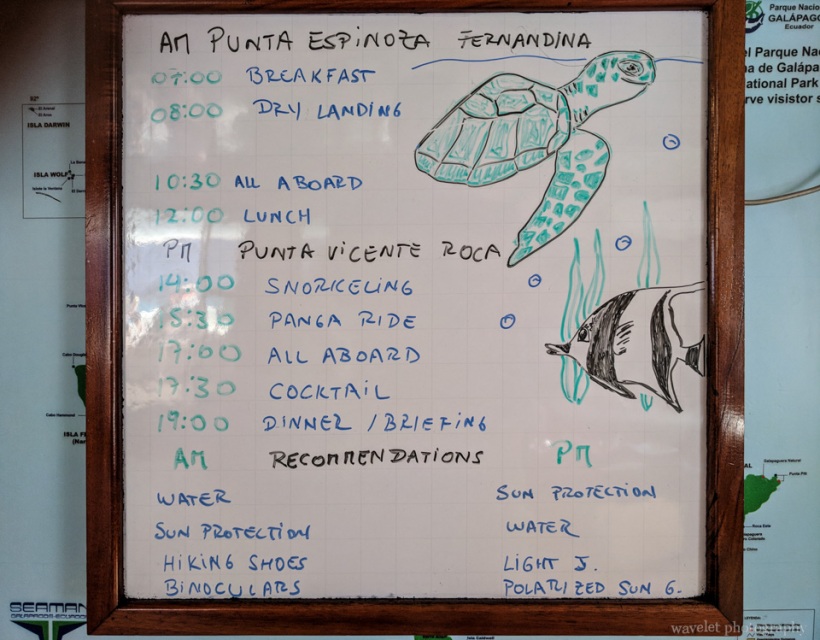 AM PUNTA ESPINOZA FERNANDINA
07:00 BREAKFAST
08:00 DRY LANDING
10:30 ALL ABOARD
12:00 LUNCH
PM PUNTA VICENTE ROCA
14:00 SNORKELING
15:30 PANGA RIDE
17:00 ALL ABOARD
17:30 COCKTAIL
19:00 DINNER / BRIEFING
AM RECOMMENDATIONS PM
WATER SUN PROTECTION
SUN PROTECTION WATER
HIKING SHOES LIGHT J.
BINOCULARS POLARIZED SUN G.
92°
ISLA DARWIN
ISLA WOLF
ISLA F
SEAMAN
Parque Nacio
GALÁPAGO
Ecuador
el Parque Na
na de Galápa
ational Park
rve visistor s
wavelet photography